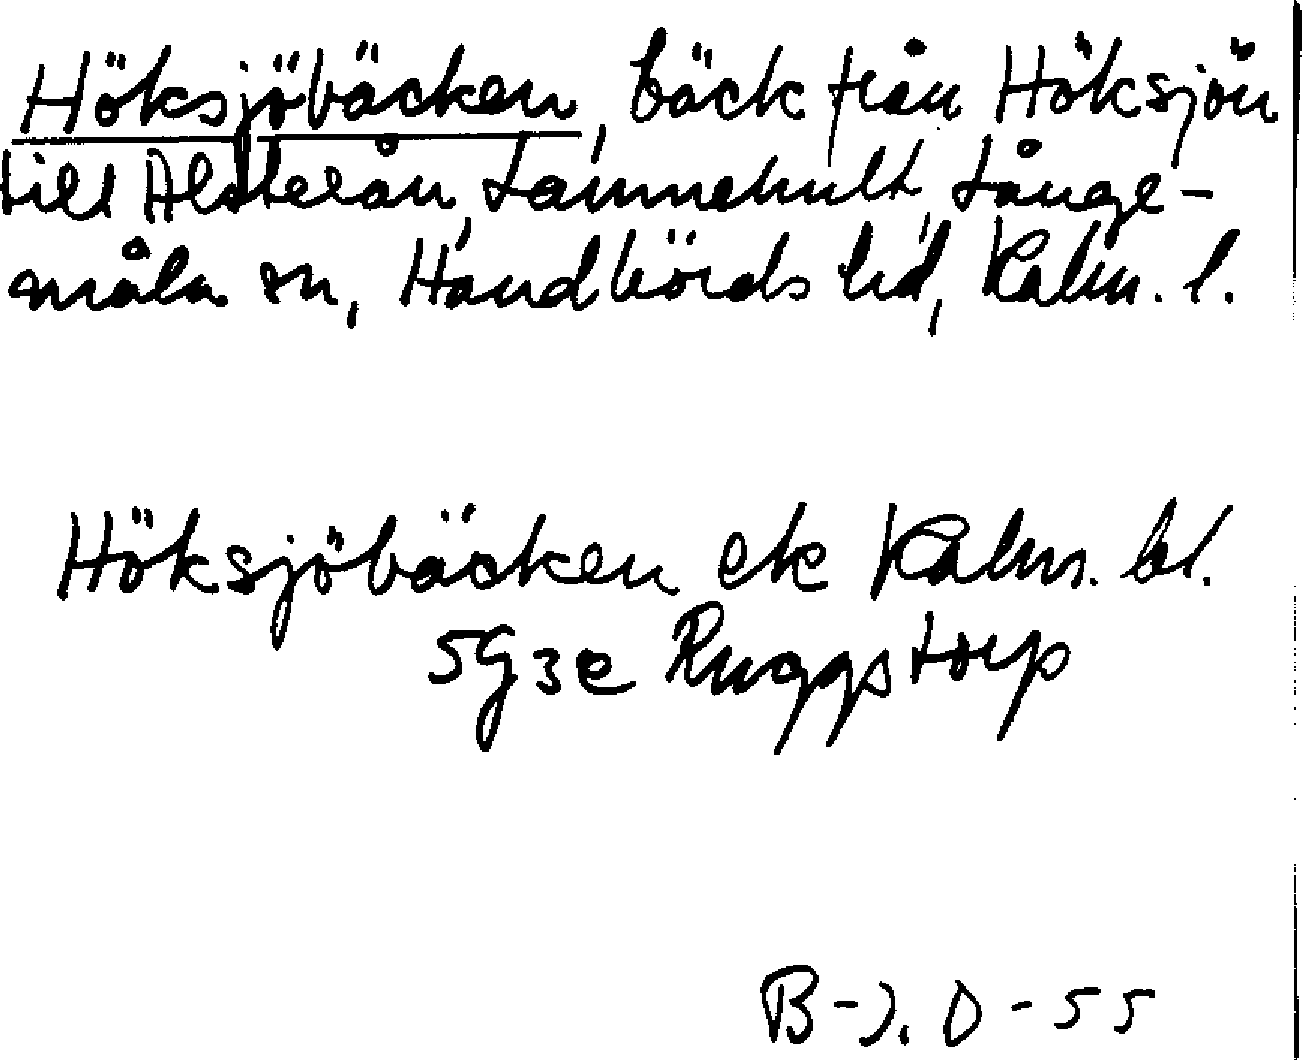 Höksjöbäcken, bäck från Höksjön
till Alsterån, Tannehult, Långe-
måla sn, Handbörds hd, Kalm. l.
Höksjöbäcken ek Kalm. bl.
5G3e Ruggstorp
B-J. O - 55